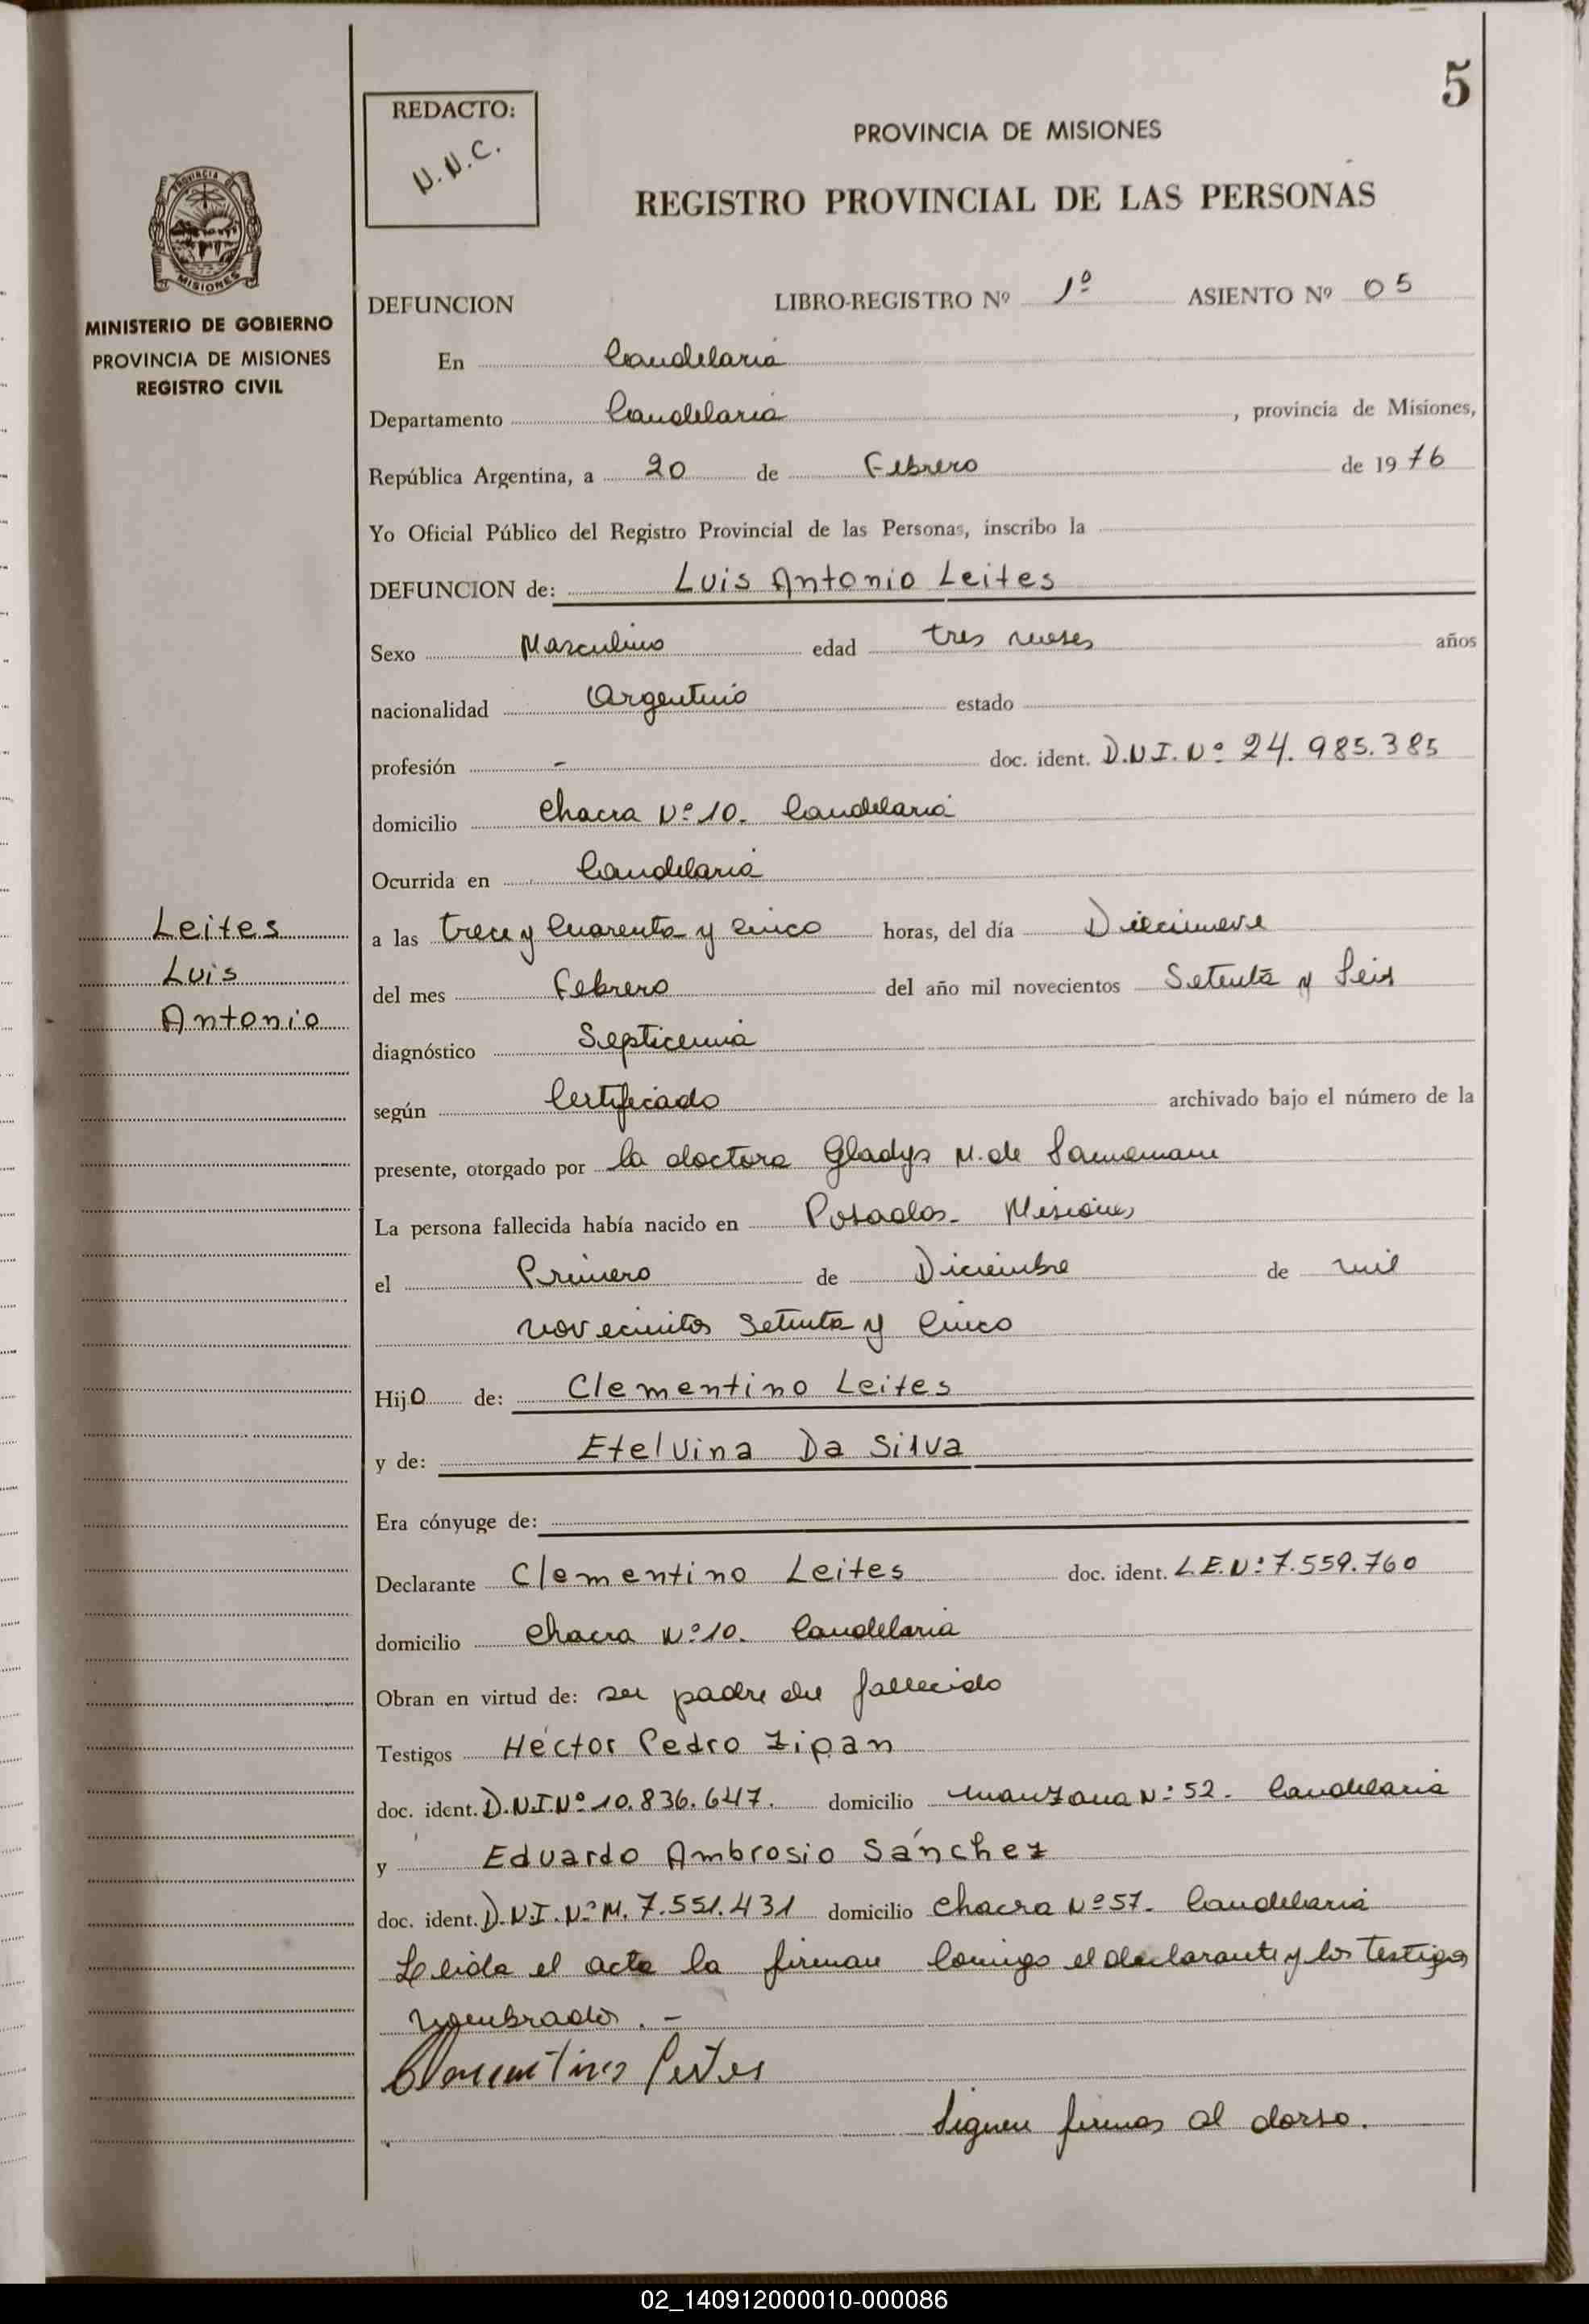 5
REDACTO:
N.N.C.
PROVINCIA DE MISIONES
REGISTRO PROVINCIAL DE LAS PERSONAS
PROVINCIA DE
MISIONES
MINISTERIO DE GOBIERNO
PROVINCIA DE MISIONES
REGISTRO CIVIL
DEFUNCION LIBRO-REGISTRO Nº 1º ASIENTO Nº 05
En Candelaria
Departamento Candelaria, provincia de Misiones,
República Argentina, a 20 de Febrero de 1976
Yo Oficial Público del Registro Provincial de las Personas, inscribo la
DEFUNCION de: Luis Antonio Leites
Sexo Masculino edad tres meses años
nacionalidad Argentino estado
profesión - doc. ident. D.N.I. Nº 24.985.385
domicilio Chacra Nº 10. Candelaria
Ocurrida en Candelaria
Leites
Luis
Antonio
a las trece y Cuarenta y cinco horas, del día Diecinueve
del mes Febrero del año mil novecientos Setenta y Seis
diagnóstico Septicemia
según Certificado archivado bajo el número de la
presente, otorgado por la doctora Gladys M. de Sannemann
La persona fallecida había nacido en Posadas - Misiones
el Primero de Diciembre de mil
novecientos Setenta y Cinco
Hijo de: Clementino Leites
y de: Etelvina Da Silva
Era cónyuge de:
Declarante Clementino Leites doc. ident. L.E. Nº 7.559.760
domicilio Chacra Nº 10. Candelaria
Obran en virtud de: ser padre del fallecido
Testigos Héctor Pedro Zipan
doc. ident. D.N.I Nº 10.836.647. domicilio manzana Nº 52 - Candelaria
y Eduardo Ambrosio Sánchez
doc. ident. D.N.I. Nº M. 7.551.431 domicilio Chacra Nº 57 - Candelaria
Leida el acta la firman Conmigo el declarante y los Testigos
nombrados. -
Clementino Leites
Siguen firmas al dorso.
02_140912000010-000086